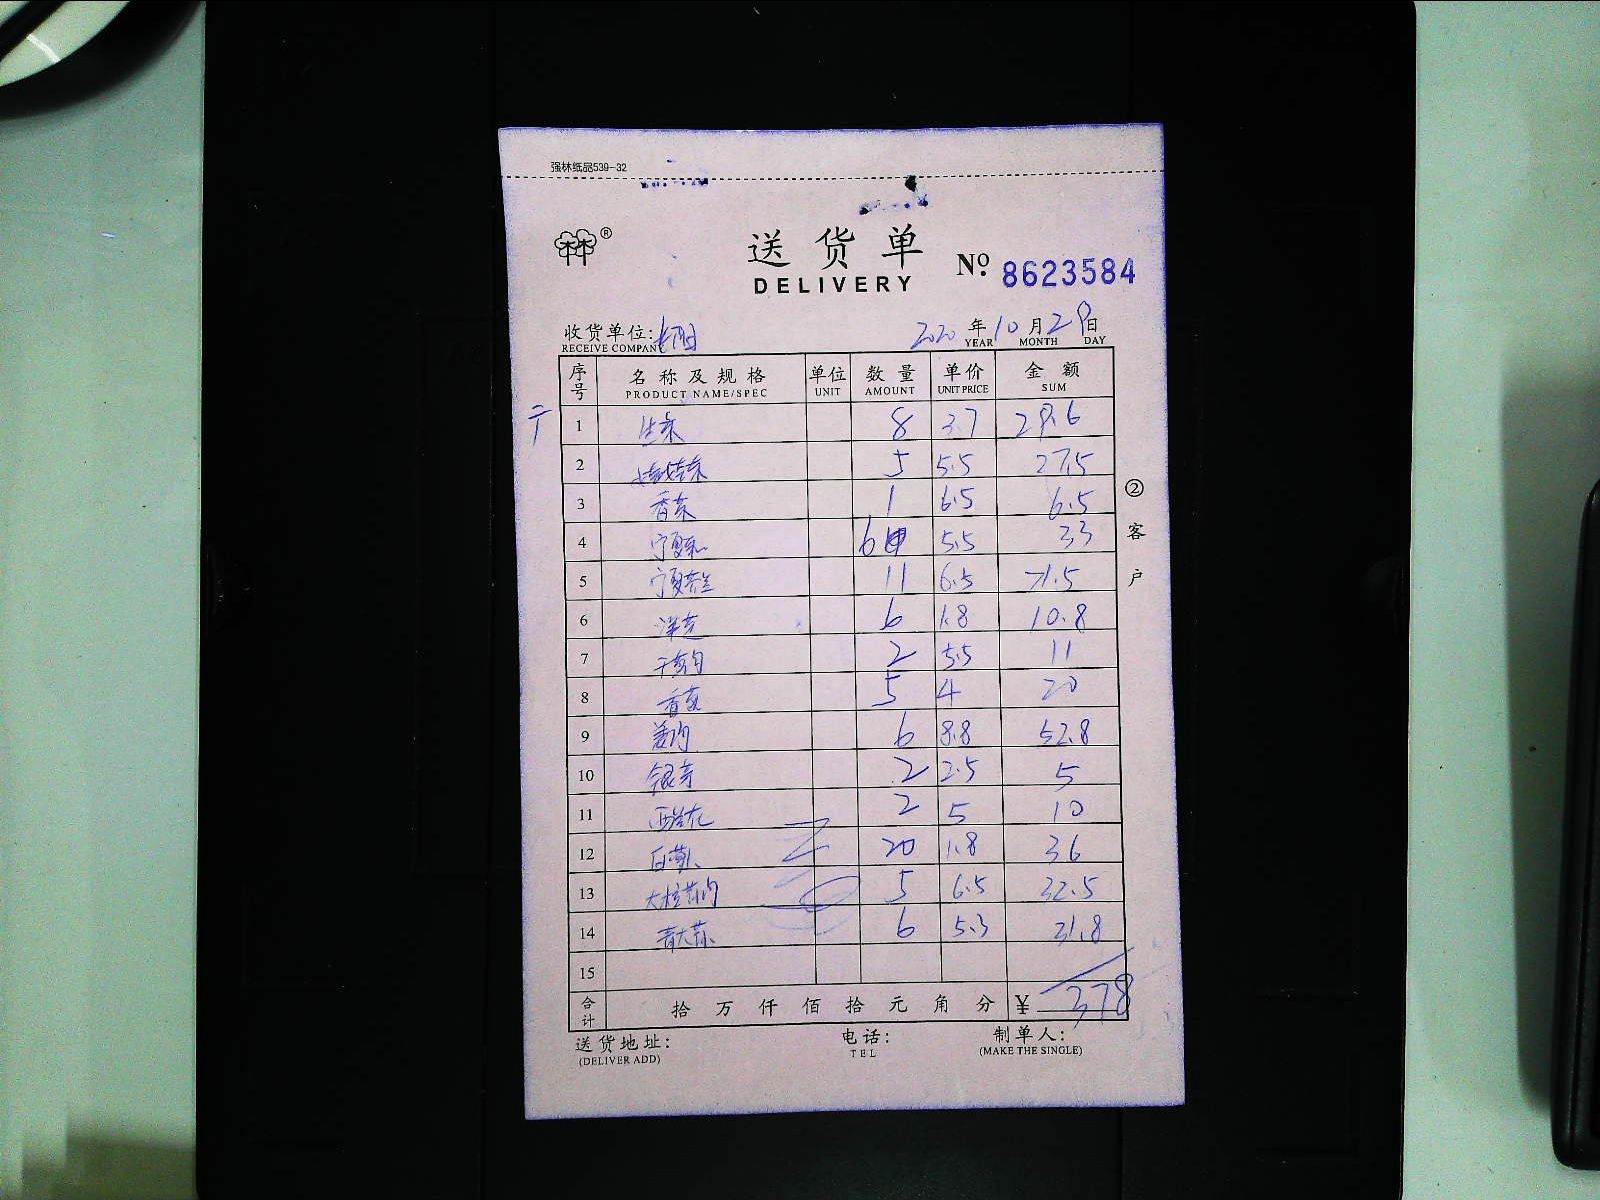 强林纸品539-32
林®
送货单
DELIVERY
№ 8623584
收货单位:
RECEIVE COMPANY
2020年10月29日
YEAR MONTH DAY
序号 名称及规格 单位 数量 单价 金额
PRODUCT NAME/SPEC UNIT AMOUNT UNIT PRICE SUM
1 生菜 8 3.7 29.6
2 娃娃菜 5 5.5 27.5
3 香菜 1 6.5 6.5
4 宁夏菜心 6 5.5 33
5 宁夏芥兰 11 6.5 71.5
6 洋芫 6 1.8 10.8
7 干葱肉 2 5.5 11
8 香芹 5 4 20
9 姜肉 6 8.8 52.8
10 银芽 2 2.5 5
11 西兰花 2 5 10
12 白萝卜 20 1.8 36
13 5 6.5 32.5
14 6 5.3 31.8
15
合计 拾 万 仟 佰 拾 元 角 分 ¥ 378
送货地址: 电话: 制单人:
(DELIVER ADD) TEL (MAKE THE SINGLE)
②客户